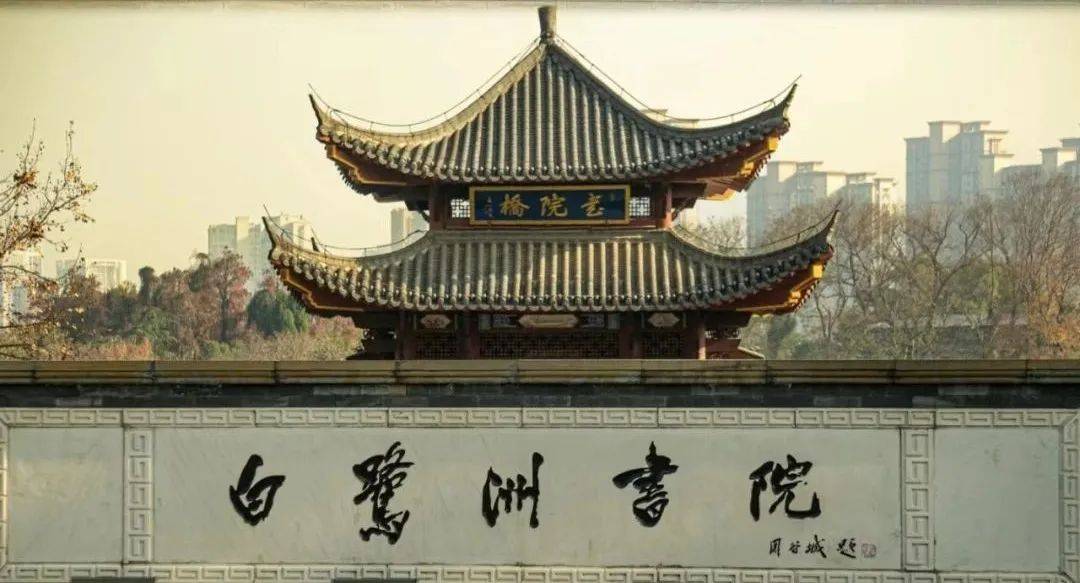 書院橋
白鷺洲書院
周谷城 題